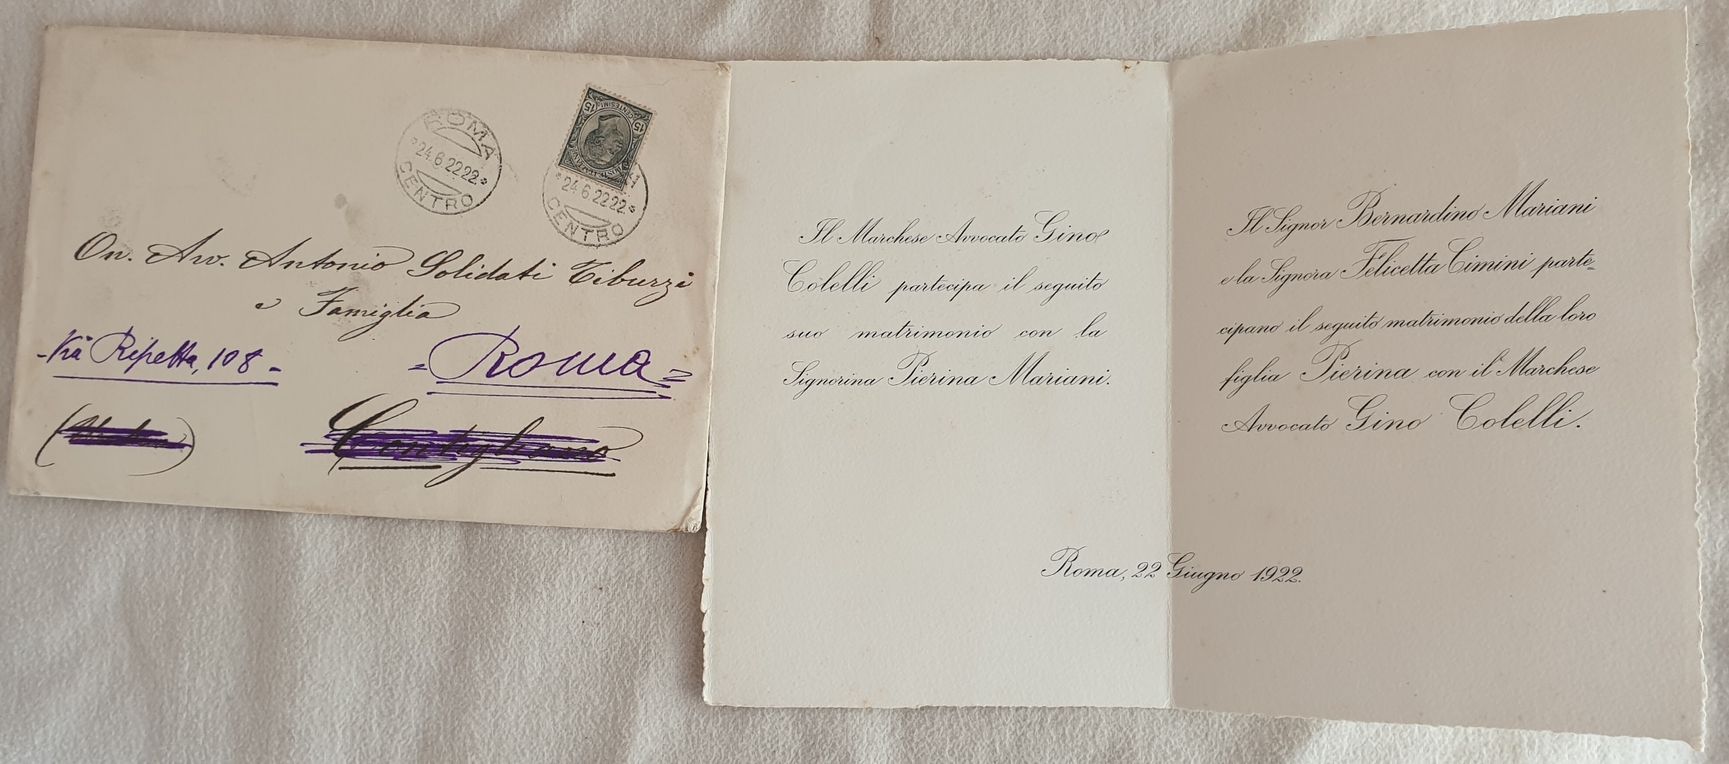 ROMA
24.6.22 22
CENTRO
15
CENTESIMI
15
24.6.22 22
CENTRO
On. Avv. Antonio Solidati Tiburzi
e Famiglia
Via Ripetta, 108
Roma
Contigliano
Il Marchese Avvocato Gino
Colelli partecipa il seguito
suo matrimonio con la
Signorina Pierina Mariani.
Il Signor Bernardino Mariani
e la Signora Felicetta Cimini parte=
cipano il seguito matrimonio della loro
figlia Pierina con il Marchese
Avvocato Gino Colelli.
Roma, 22 Giugno 1922.